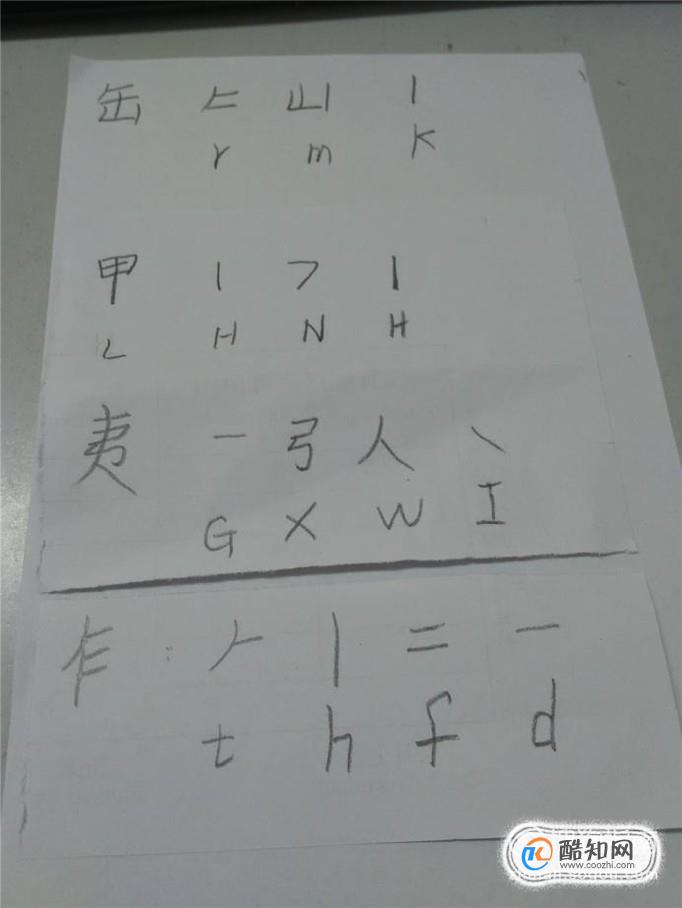 缶 𠂉 山 丨
r m K
甲 丨 フ 丨
L H N H
夷 一 弓 人 丶
G X W I
乍 : 𠂉 丨 二 一
t h f d
酷知网
www.coozhi.com